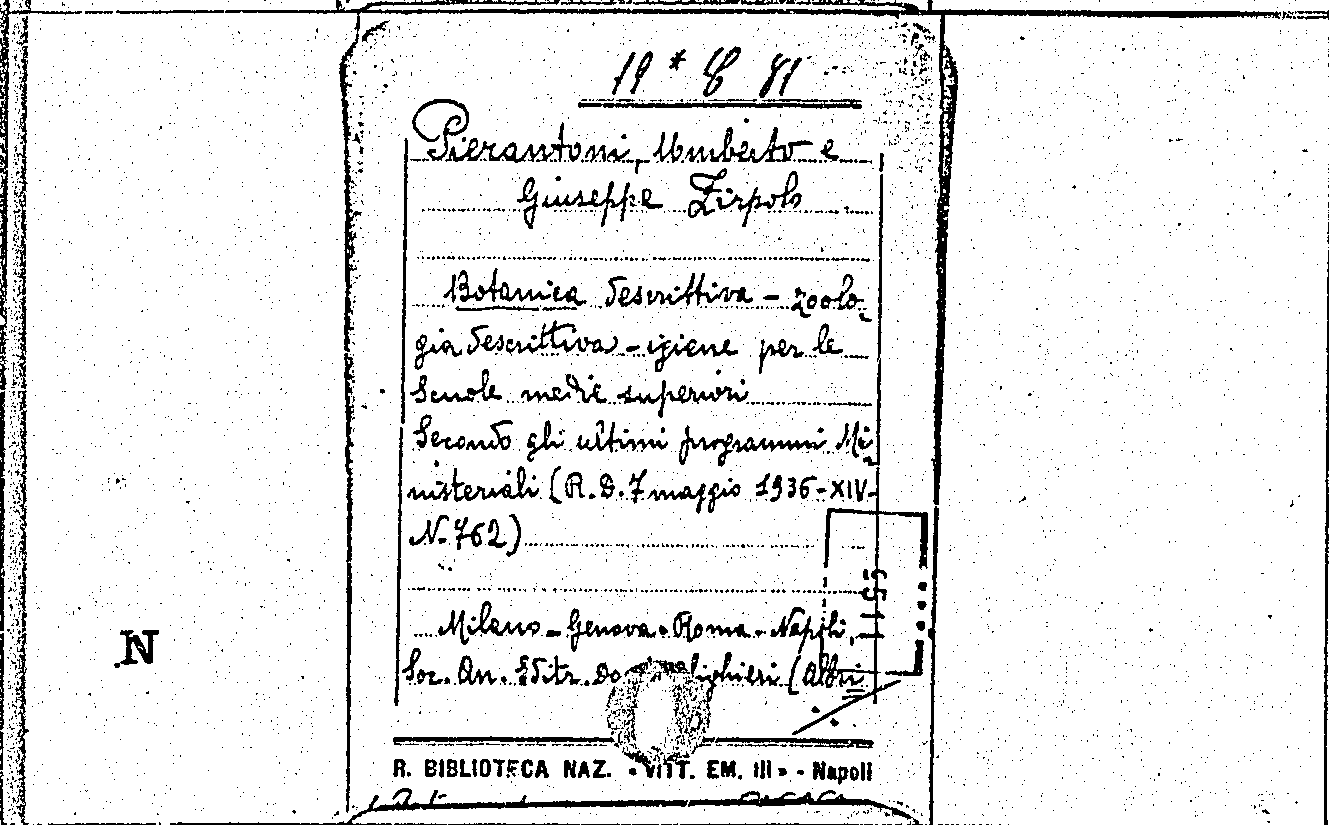 19 * C 81
Pierantoni, Umberto e
Giuseppe Zirpolo
Botanica descrittiva - zoolo-
gia descrittiva - igiene per le
Scuole medie superiori
Secondo gli ultimi programmi Mi-
nisteriali (R.D. 7 maggio 1936-XIV-
N. 762)
Milano - Genova - Roma - Napoli,
Soc. An. Editr. Da alighieri (Albri
N
R. BIBLIOTECA NAZ. «VITT. EM. III» - Napoli